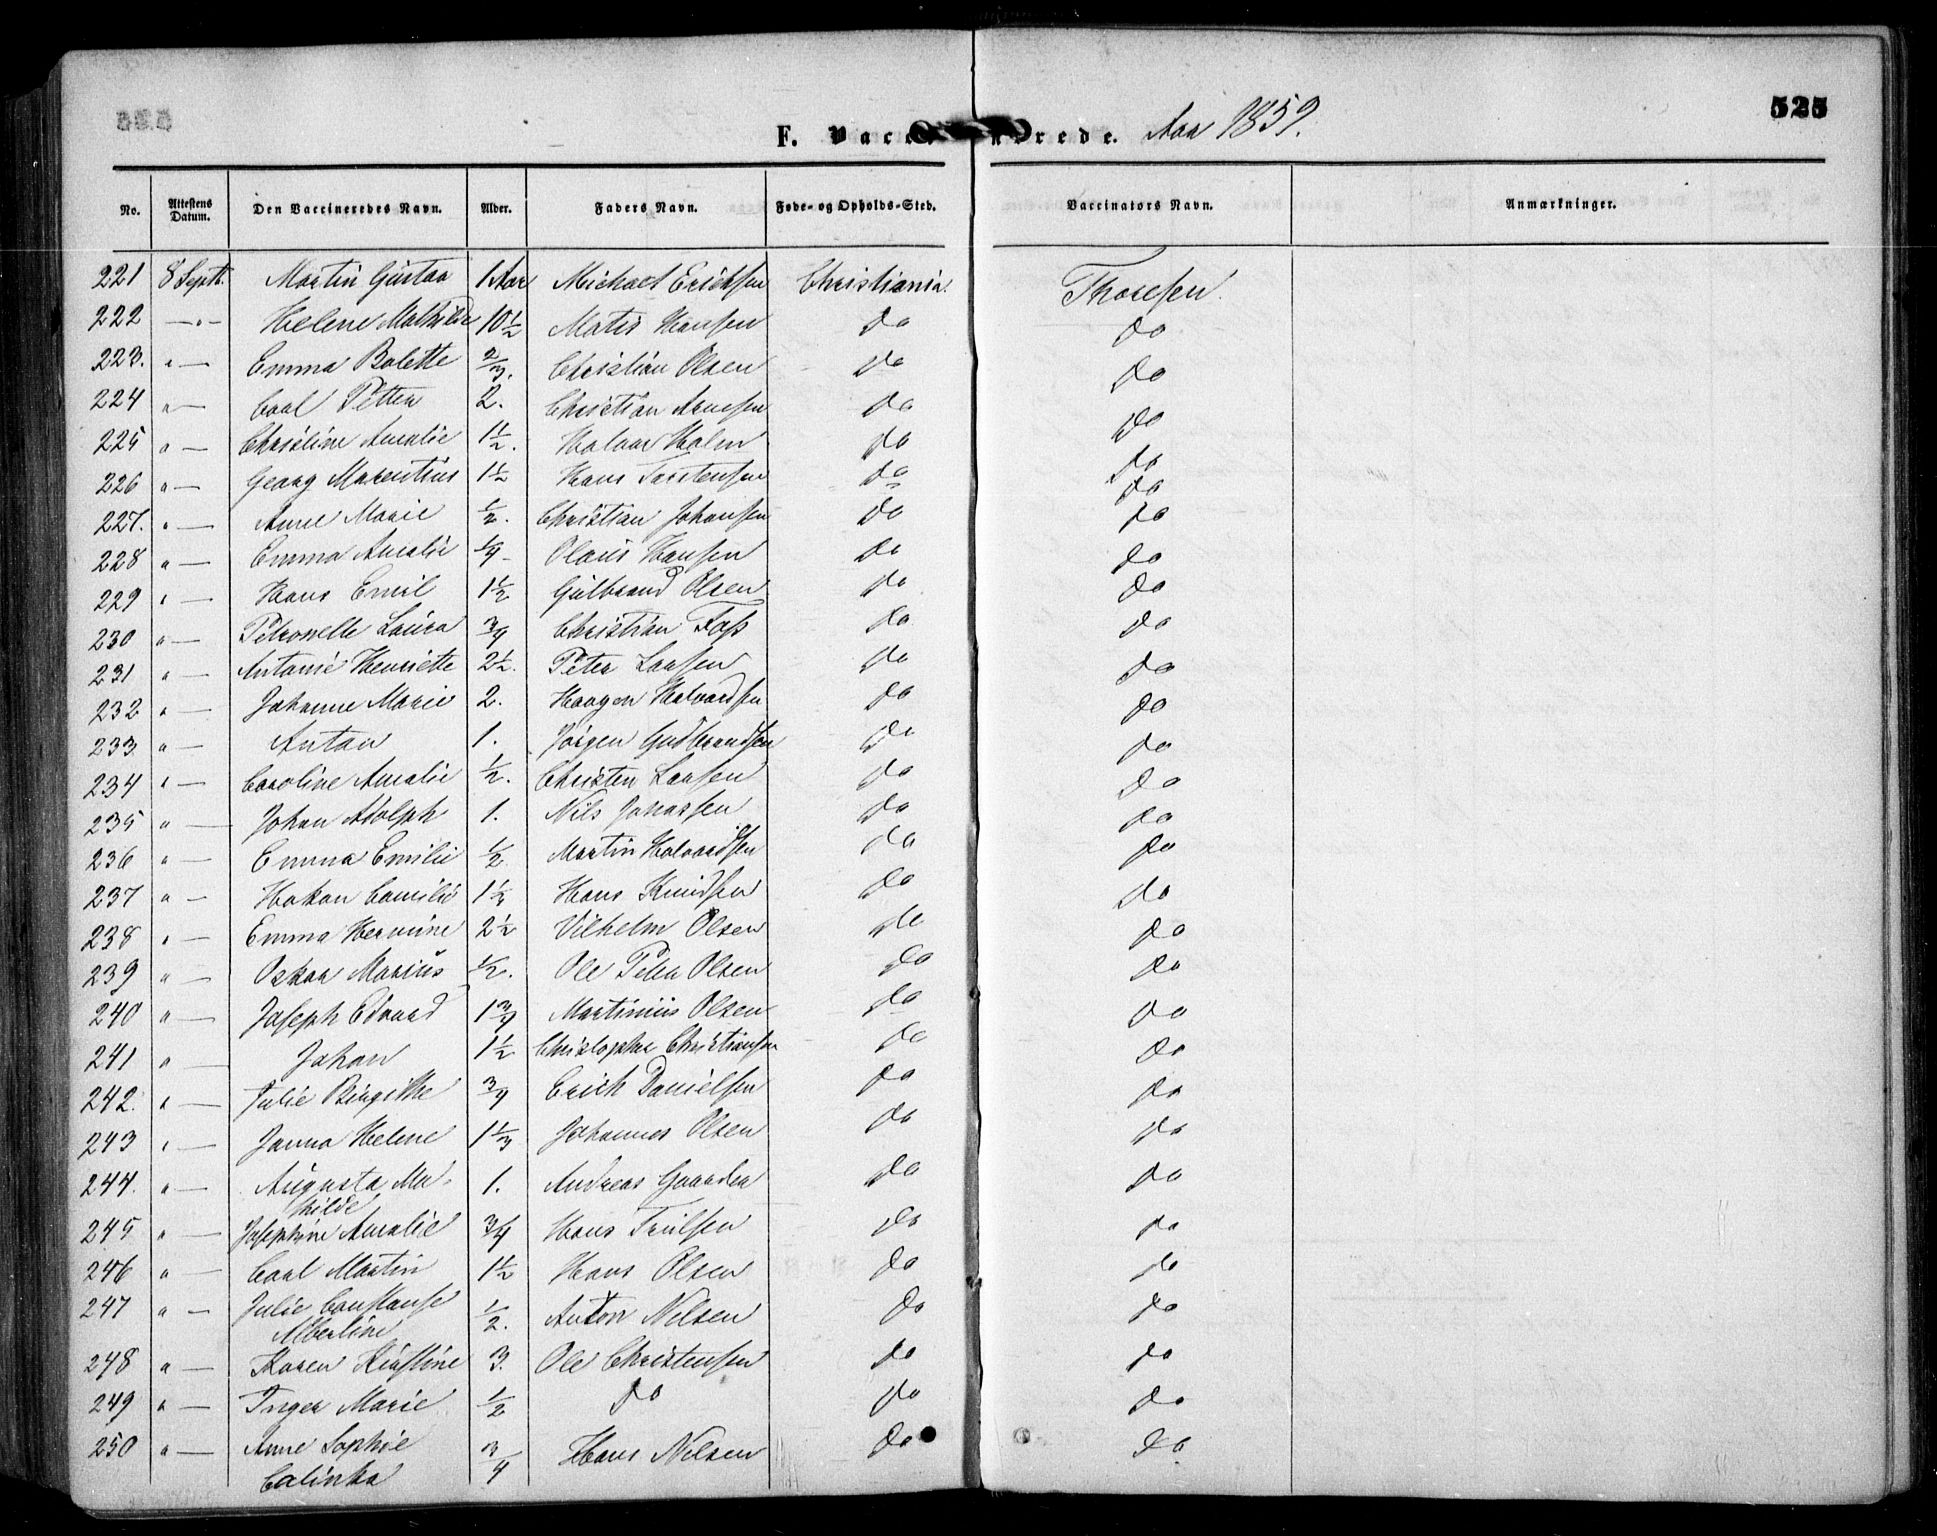 525
F. Vacc rede. Aar 1859.
No. Attestens Datum. Den Vaccineredes Navn. Alder. Faders Navn. Føde- og Opholds-Sted. Vaccinators Navn. Anmærkninger.
221 8 Septb. Martin Gustav 1 Aar Michael Ericksen Christiania. Thoresen.
222 —"— Helene Mathilde 10 1/2 Matis Hansen do do
223. " — Emma Bolette 2/3. Christian Olsen do do
224 " — Carl Petter 2. Christian Arnesen do do
225 " — Christine Amalie 1 1/2. Halvor Holm do do
226 " — Georg Marentius 1 1/2 Hans Torstensen do do
227. " — Anne Marie 1/2. Christian Johansen do do
228 " — Emma Amalie 1/4 Olaus Hansen do do
229 " — Hans Emil 1 1/2 Gulbrand Olsen do do
230 " — Petronelle Laura 3/4 Christian Foss do do
231 " — Antonie Henriette 2 1/2. Peter Larsen do do
232 " — Johanne Marie 2. Haagen Halvorsen do do
233. " — Anton 1. Jørgen Gudbrandsen do do
234 " — Caroline Amalie 1/2. Christen Larsen do do
235 " — Johan Adolph 1. Nils Johassen do do
236 " — Emma Emilie 1/2 Martin Halvordsen do do
237 " — Hakon Camilo 1 1/3 Hans Knudsen do do
238 " — Emma Hermine 2 1/2 Vilhelm Olsen do do
239 " — Oskar Marius 1/2. Ole Peter Olsen do do
240 " — Joseph Edvard 1 3/4 Martinius Olsen do do
241 " — Johan 1 1/2 Christopher Christiansen do do
242. " — Julie Birgithe 3/4 Erich Danielsen do do
243 " — Janna Helene 1 1/3 Johannes Olsen do do
244. " — Augusta Ma- 1. Andreas Gaarder do do
thilde
245 " — Josephine Amalie 3/4 Hans Trulsen do do
246 " — Carl Martin 1 1/2 Hans Olsen do do
247 " — Julie Constanse 1/2. Anton Nilsen do do
Albertine
248 " — Karen Kirstine 3. Ole Christensen do do
249 " — Inger Marie 1/2 do do do
250 " — Anne Sophie 3/4 Hans Nilsen do do
Calinka